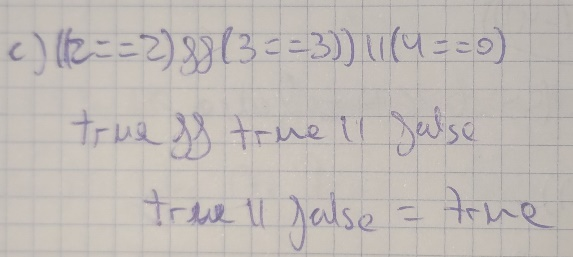 c) ((2==2)&&(3==3))||(4==0)
true && true || false
true || false = true